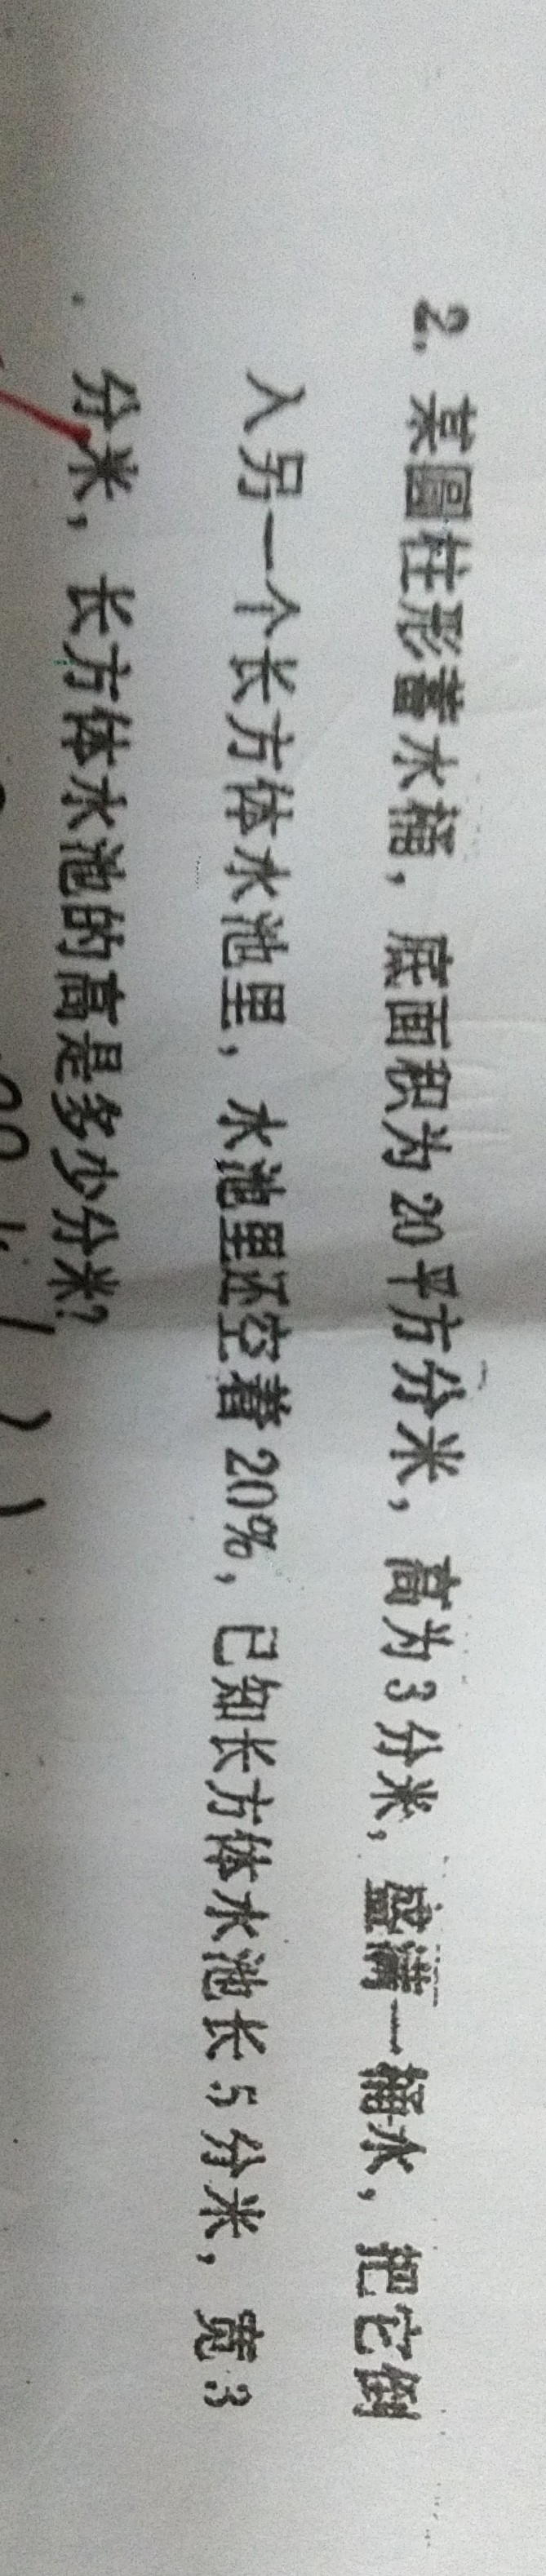 2. 某圆柱形蓄水桶，底面积为20平方分米，高为3分米，盛满一桶水，把它倒
入另一个长方体水池里，水池里还空着20%，已知长方体水池长5分米，宽3
分米，长方体水池的高是多少分米?